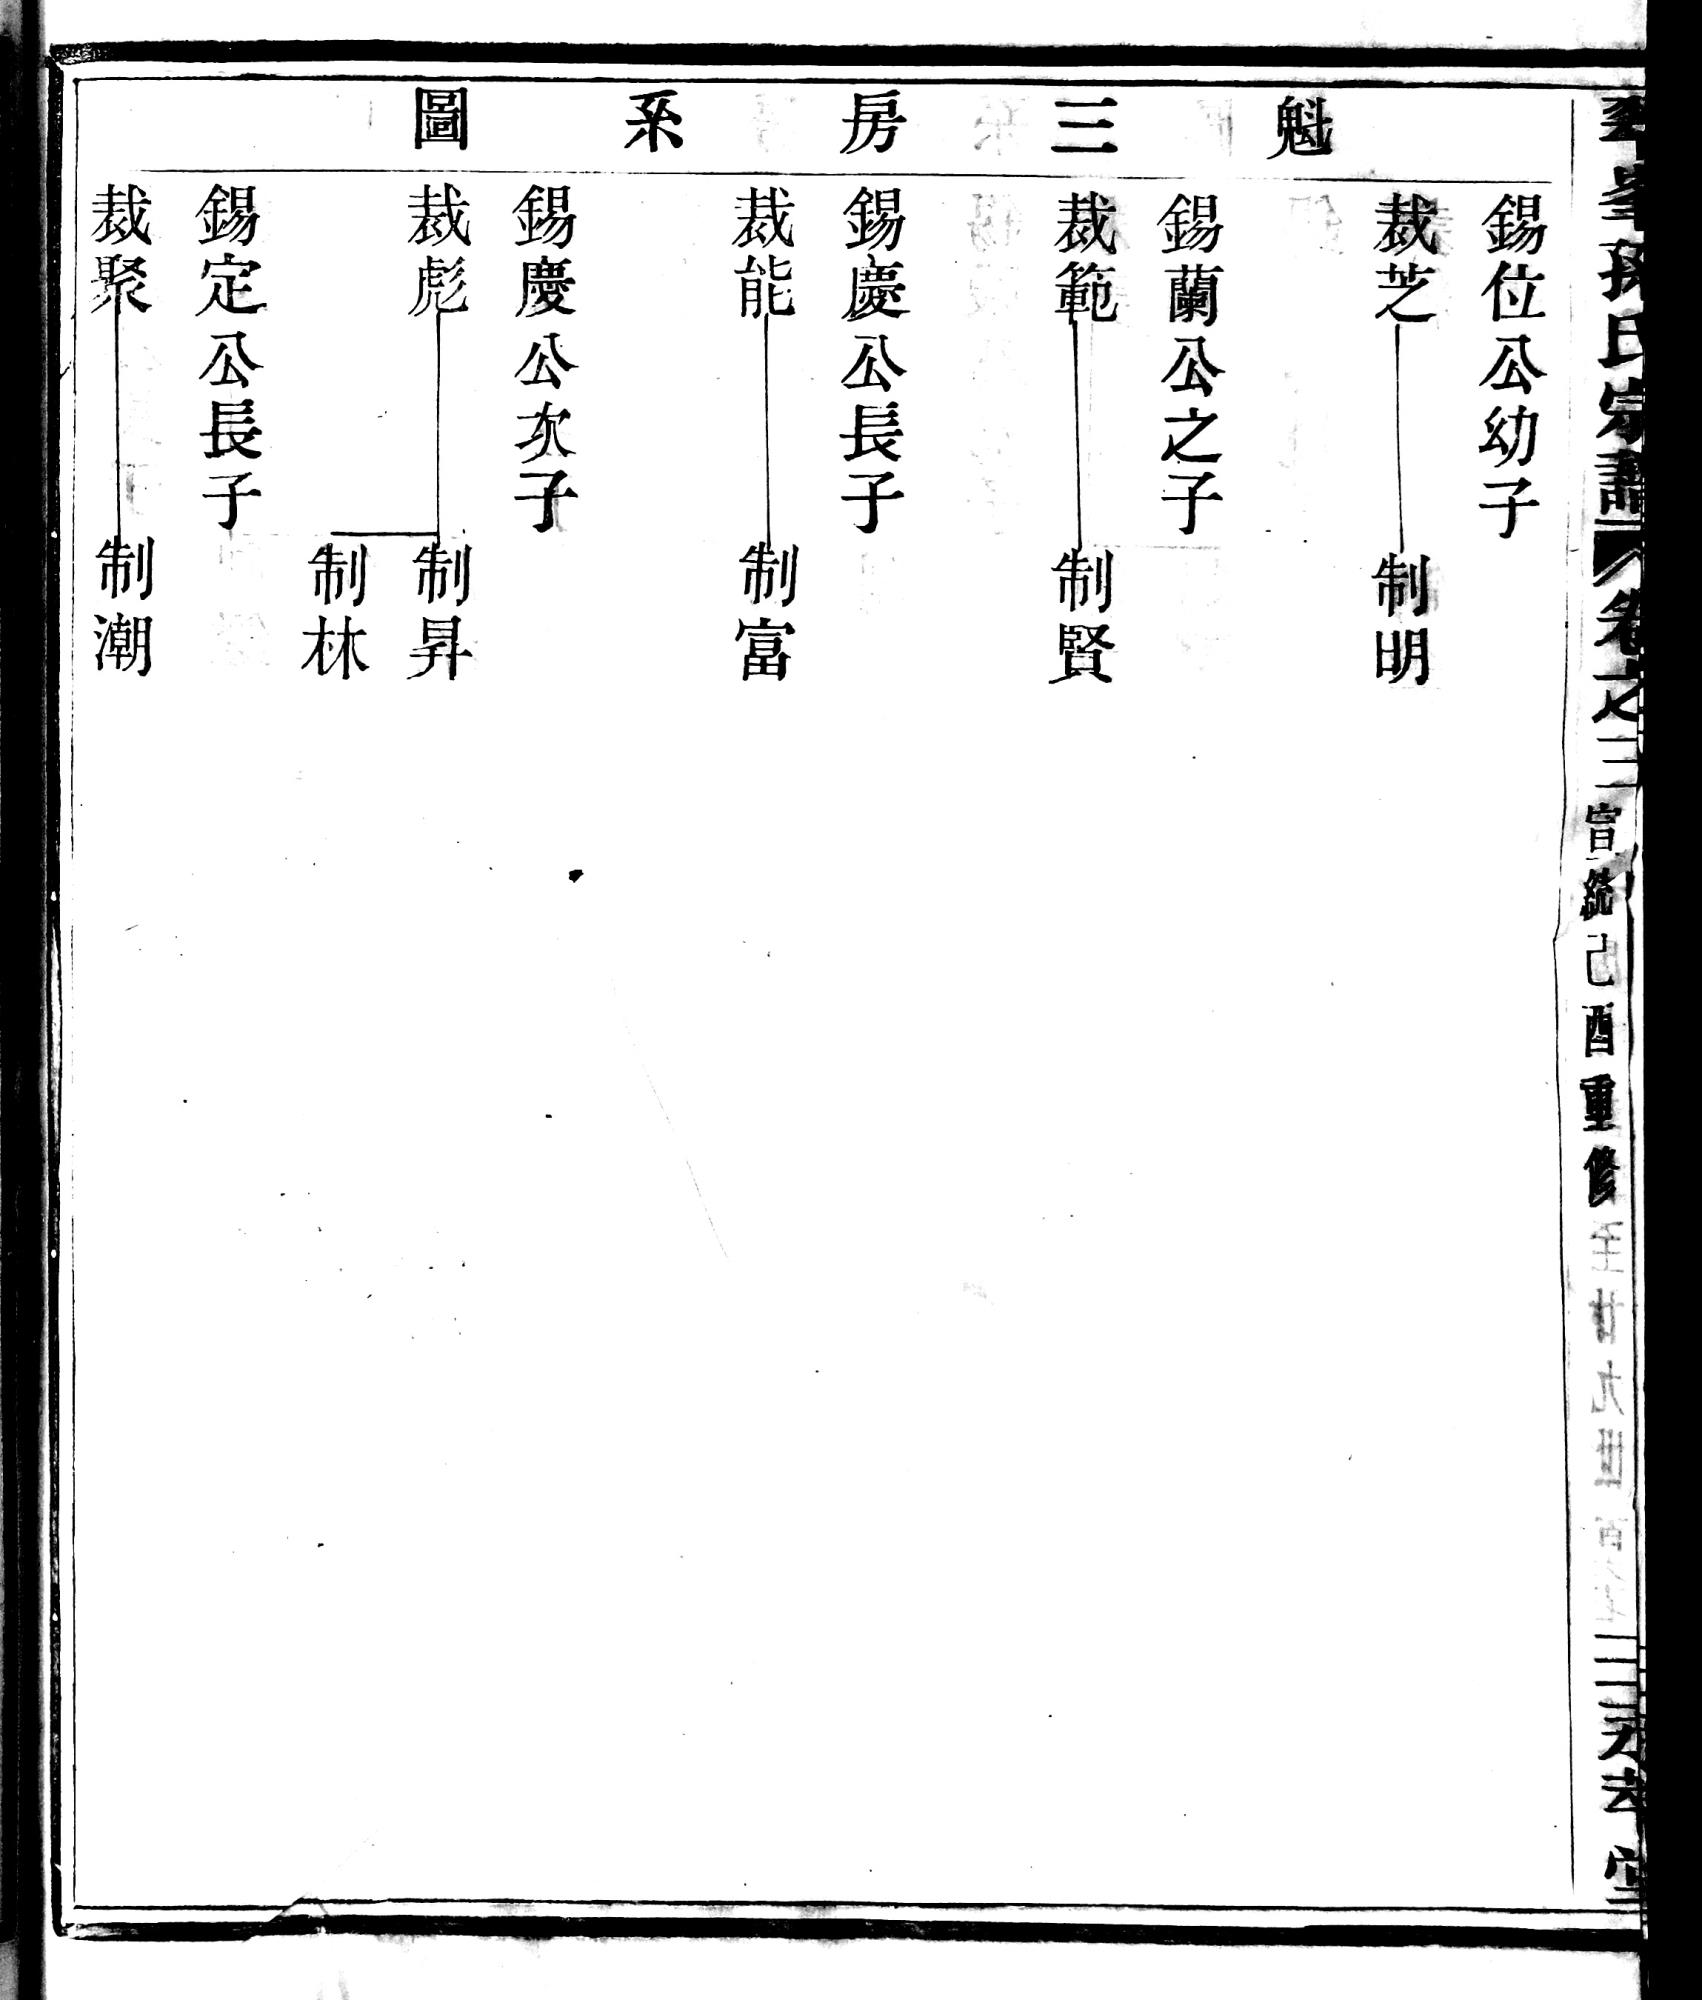 魁三房系圖
錫位公幼子
裁芝
制明
錫蘭公之子
裁範
制賢
錫慶公長子
裁能
制富
錫慶公次子
裁彪
制昇
制林
錫定公長子
裁聚
制潮
孫氏宗譜
卷之三
宣統己酉重修
至廿九世
堂